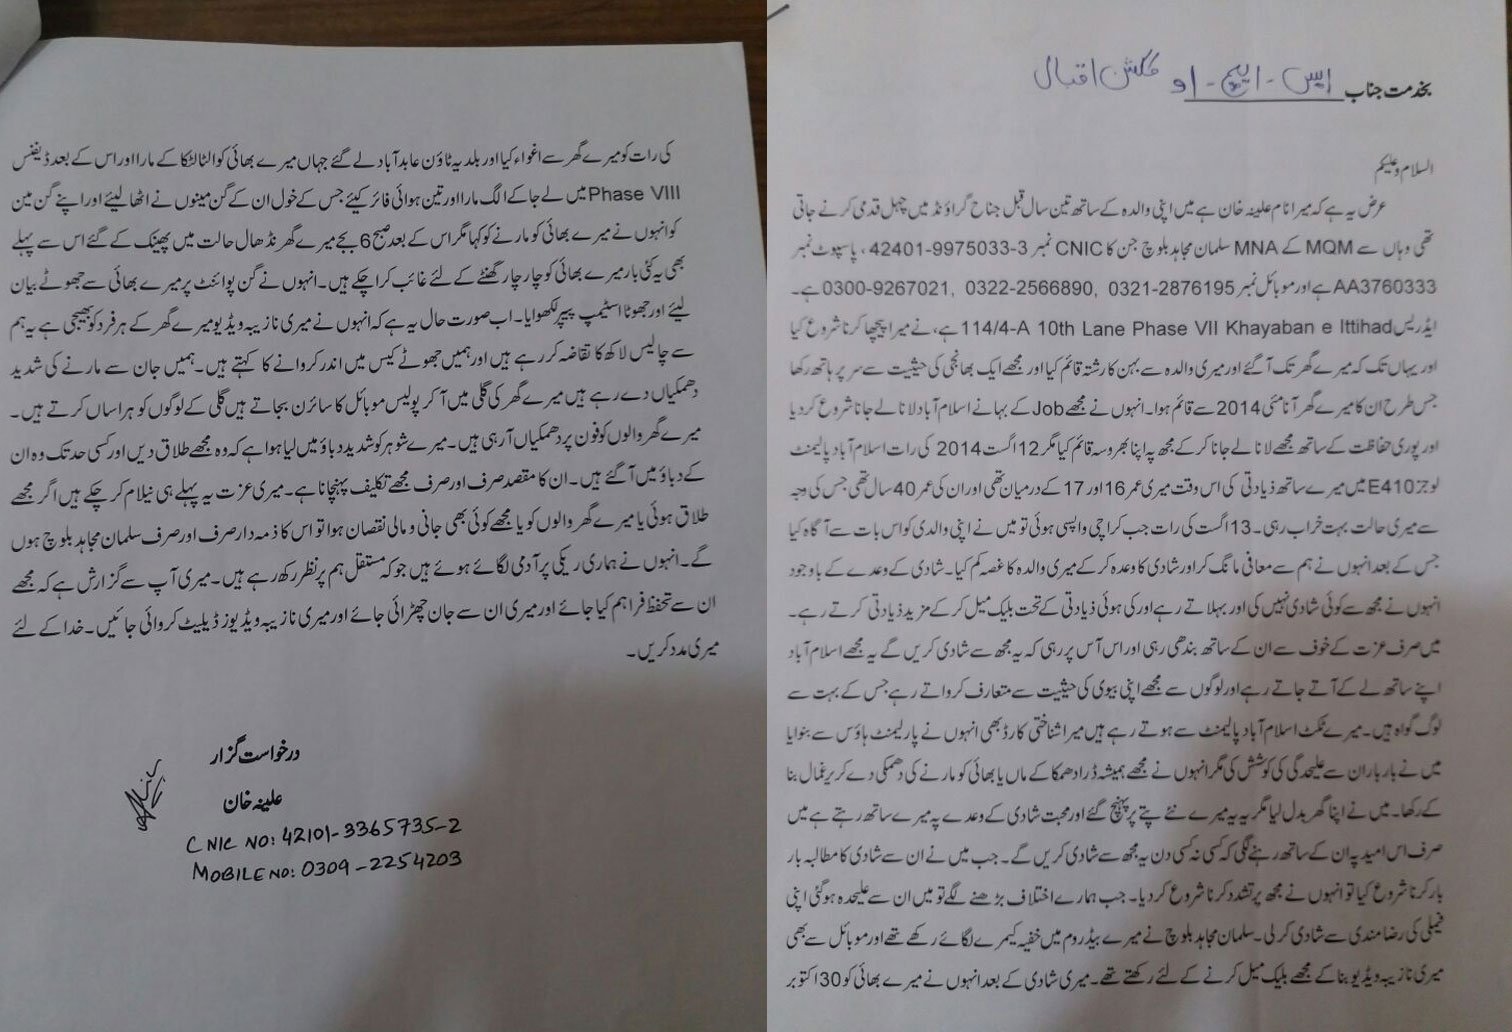 بخدمت جناب ایس - ایچ - او گلشن اقبال
السلام وعلیکم
عرض یہ ہے کہ میرا نام علینہ خان ہے میں اپنی والدہ کے ساتھ تین سال قبل جناح گراؤنڈ میں چہل قدمی کرنے جاتی
تھی وہاں سے MQM کے MNA سلمان مجاہد بلوچ جن کا CNIC نمبر 42401-9975033-3 ، پاسپوٹ نمبر
AA3760333 ہے اور موبائل نمبر 0321-2876195 ,0322-2566890 ,0300-9267021 ہے۔
ایڈریس 114/4-A 10th Lane Phase VII Khayaban e Ittihad ہے، نے میرا پیچھا کرنا شروع کیا
اور یہاں تک کہ میرے گھر تک آگئے اور میری والدہ سے بہن کا رشتہ قائم کیا اور مجھے ایک بھانجی کی حیثیت سے سر پر ہاتھ رکھا
جس طرح ان کا میرے گھر آنا مئی 2014 سے قائم ہوا۔ انہوں نے مجھے Job کے بہانے اسلام آباد لانا لے جانا شروع کردیا
اور پوری حفاظت کے ساتھ مجھے لانا لے جانا کر کے مجھ پہ اپنا بھروسہ قائم کیا مگر 12 اگست 2014 کی رات اسلام آباد پالیمنٹ
لوجز E410 میں میرے ساتھ ذیادتی کی اس وقت میری عمر 16 اور 17 کے درمیان تھی اور ان کی عمر 40 سال تھی جس کی وجہ
سے میری حالت بہت خراب رہی۔ 13 اگست کی رات جب کراچی واپسی ہوئی تو میں نے اپنی والدی کو اس بات سے آگاہ کیا
جس کے بعد انہوں نے ہم سے معافی مانگ کر اور شادی کا وعدہ کر کے میری والدہ کا غصہ کم کیا۔ شادی کے وعدے کے باوجود
انہوں نے مجھ سے کوئی شادی نہیں کی اور بہلاتے رہے اور کی ہوئی ذیادتی کے تحت بلیک میل کر کے مزید ذیادتی کرتے رہے۔
میں صرف عزت کے خوف سے ان کے ساتھ بندھی رہی اور اس آس پر رہی کہ یہ مجھ سے شادی کریں گے یہ مجھے اسلام آباد
اپنے ساتھ لے کے آتے جاتے رہے اور لوگوں سے مجھے اپنی بیوی کی حیثیت سے متعارف کرواتے رہے جس کے بہت سے
لوگ گواہ ہیں۔ میرے ٹکٹ اسلام آباد پالیمنٹ سے ہوتے رہے ہیں میرا شناختی کارڈ بھی انہوں نے پارلیمنٹ ہاؤس سے بنوایا
میں نے بار بار ان سے علیحدگی کی کوشش کی مگر انہوں نے مجھے ہمیشہ ڈرا دھمکا کے ماں یا بھائی کو مارنے کی دھمکی دے کر یرغمال بنا
کے رکھا۔ میں نے اپنا گھر بدل لیا مگر یہ یہ میرے نئے پتے پر پہنچ گئے اور محبت شادی کے وعدے پہ میرے ساتھ رہتے ہے میں
صرف اس امید پہ ان کے ساتھ رہنے لگی کہ کسی نہ کسی دن یہ مجھ سے شادی کریں گے۔ جب میں نے ان سے شادی کا مطالبہ بار
بار کرنا شروع کیا تو انہوں نے مجھ پر تشدد کرنا شروع کردیا۔ جب ہمارے اختلاف بڑھنے لگے تو میں ان سے علیحدہ ہوگئی اپنی
فیملی کی رضامندی سے شادی کرلی۔ سلمان مجاہد بلوچ نے میرے بیڈروم میں خفیہ کیمرے لگائے رکھے تھے اور موبائل سے بھی
میری نازیبہ ویڈیو بنا کے مجھے بلیک میل کرنے کے لئے رکھتے تھے۔ میری شادی کے بعد انہوں نے میرے بھائی کو 30 اکتوبر
کی رات کو میرے گھر سے اغواء کیا اور بلدیہ ٹاؤن عابد آباد لے گئے جہاں میرے بھائی کو الٹا لٹکا کے مارا اور اس کے بعد ڈیفنس
Phase VIII میں لے جا کے الگ مارا اور تین ہوائی فائر کیئے جس کے خول ان کے گن مینوں نے اٹھا لیئے اور اپنے گن مین
کو انہوں نے میرے بھائی کو مارنے کو کہا مگر اس کے بعد صبح 6 بجے میرے گھر نڈھال حالت میں پھینک کے گئے اس سے پہلے
بھی یہ کئی بار میرے بھائی کو چار چار گھنٹے کے لئے غائب کراچکے ہیں۔ انہوں نے گن پوائنٹ پر میرے بھائی سے جھوٹے بیان
لیئے اور جھوٹا اسٹیمپ پیپر لکھوایا۔ اب صورت حال یہ ہے کہ انہوں نے میری نازیبہ ویڈیو میرے گھر کے ہر فرد کو بھیجی ہے یہ ہم
سے چالیس لاکھ کا تقاضہ کر رہے ہیں اور ہمیں جھوٹے کیس میں اندر کروانے کا کہتے ہیں۔ ہمیں جان سے مارنے کی شدید
دھمکیاں دے رہے ہیں میرے گھر کی گلی میں آکر پولیس موبائل کا سائرن بجاتے ہیں گلی کے لوگوں کو ہراساں کرتے ہیں۔
میرے گھر والوں کو فون پر دھمکیاں آرہی ہیں۔ میرے شوہر کو شدید دباؤ میں لیا ہوا ہے کہ وہ مجھے طلاق دیں اور کسی حد تک وہ ان
کے دباؤ میں آگئے ہیں۔ ان کا مقصد صرف اور صرف مجھے تکلیف پہنچانا ہے۔ میری عزت یہ پہلے ہی نیلام کرچکے ہیں اگر مجھے
طلاق ہوئی یا میرے گھر والوں کو یا مجھے کوئی بھی جانی و مالی نقصان ہوا تو اس کا ذمہ دار صرف اور صرف سلمان مجاہد بلوچ ہوں
گے۔ انہوں نے ہماری ریکی پر آدمی لگائے ہوئے ہیں جو کہ مستقل ہم پر نظر رکھ رہے ہیں۔ میری آپ سے گزارش ہے کہ مجھے
ان سے تحفظ فراہم کیا جائے اور میری ان سے جان چھڑائی جائے اور میری نازیبہ ویڈیوز ڈیلیٹ کروائی جائیں۔ خدا کے لئے
میری مدد کریں۔
درخواست گزار
علینہ خان
CNIC NO: 42101-3365735-2
MOBILE NO: 0309-2254203